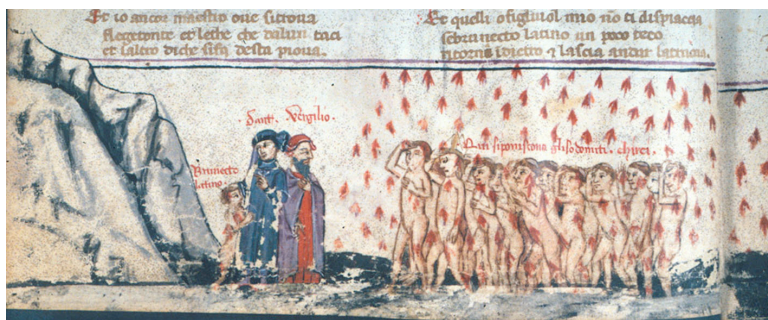 Et io ancor maestro oue si troua
flegetonte et lethe che dalun taci
et laltro di che si fa desta piova.
Et quelli o figliuol mio no ti dispiacça
se brunecto latino un poco teco
ritorna indietro & lascia andar la traccia.
Dant. Vergilio.
Brunecto
latino